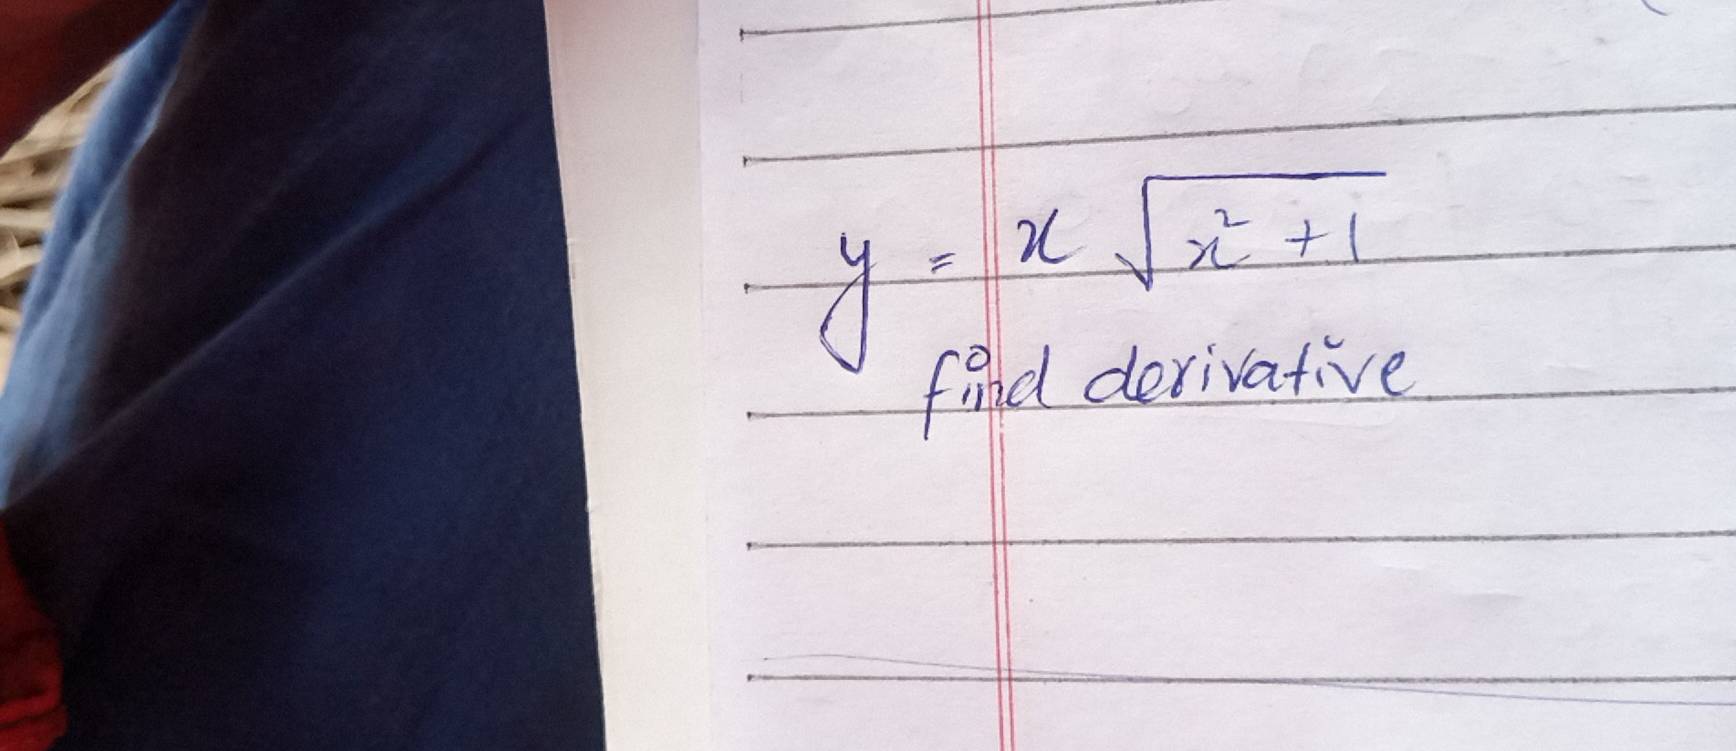 y = x √(x² + 1)
find derivative